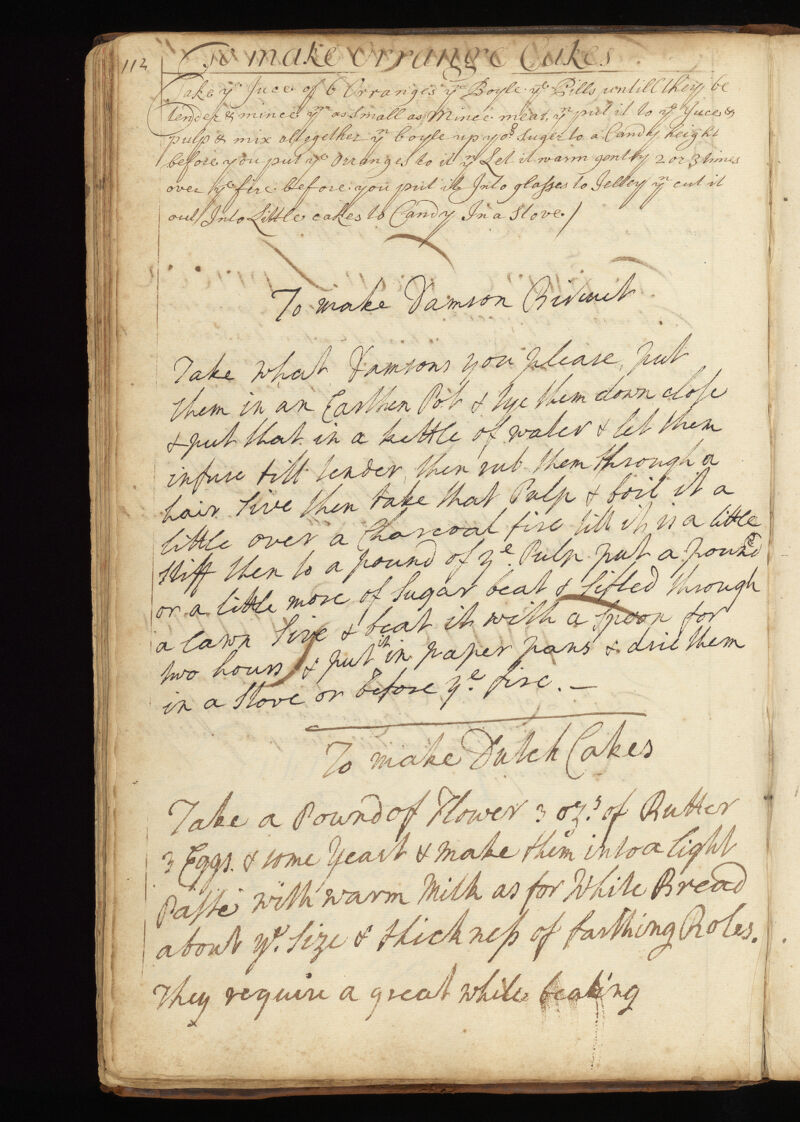 112
To make Orrange Cakes
Take ye Juce of 6 Orranges yn Boyle ye Pills untill they be
tender & mince ym as small as Mince meat, yn put it to ye Juce &
pulp & mix altogether yn boyle up yor Suger to a Candy height
before you put ye Orranges to it yn Let it warm gently 2 or 3 times
over ye fire before you put it Into glasses to Jelley yn cut it
out Into Little cakes to Candy In a Stove /
To make Damson Biscuit
Take what Damsons you please, put
them in an Earthen Pot & tye them down close
& put that in a kettle of water & let them
infuse till tender, then rub them through a
hair Sive then take that Pulp & boil it a
little over a Charcoal fire till it is a little
Stiff then to a pound of ye Pulp put a pound
or a little more of Sugar beat & Sifted through
a Lawn Sive & beat it with a Spoon for
two hours & put it in paper pans & drie them
in a Stove or before ye fire. —
To make Dutch Cakes
Take a Pound of Flower 3 ozs of Butter
3 Eggs. & some Yeast & make them into a light
Paste with warm Milk as for White Bread
about ye Size & thickness of farthing Roles.
They require a great while beating